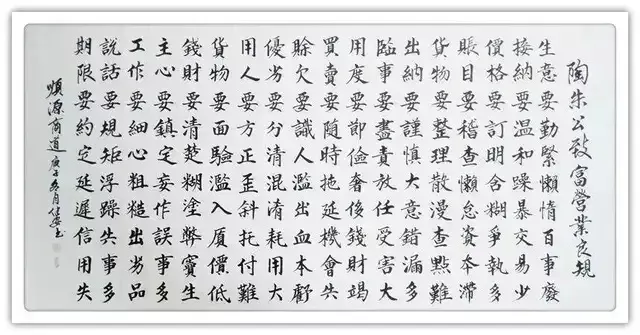 陶朱公致富營業良規
生意要勤緊懶惰百事廢
接納要温和躁暴交易少
價格要訂明含糊爭執多
賬目要稽查懶怠資本滯
貨物要整理散漫查點難
出納要謹慎大意錯漏多
臨事要盡責放任受害大
用度要節儉奢侈錢財竭
買賣要隨時拖延機會失
賒欠要識人濫出血本虧
優劣要分清混淆耗用大
用人要方正歪斜托付難
貨物要面驗濫入質價低
錢財要清楚糊塗弊竇生
主心要鎮定妄作誤事多
工作要細心粗糙出劣品
說話要規矩浮躁失事多
期限要約定延遲信用失
順源商道庚子冬月